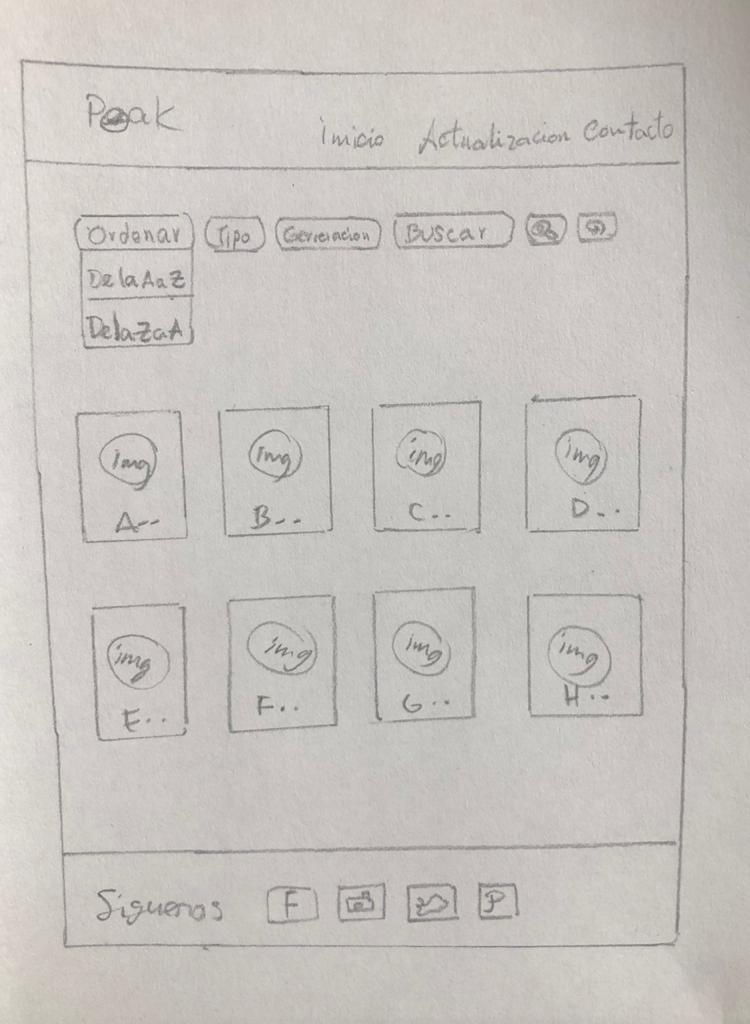 Peak
inicio Actualizacion Contacto
Ordenar Tipo Generacion Buscar
De la A a Z
De la Z a A
img img img img
A-- B-- C.. D..
img img img img
E.. F.. G.. H..
Siguenos F P